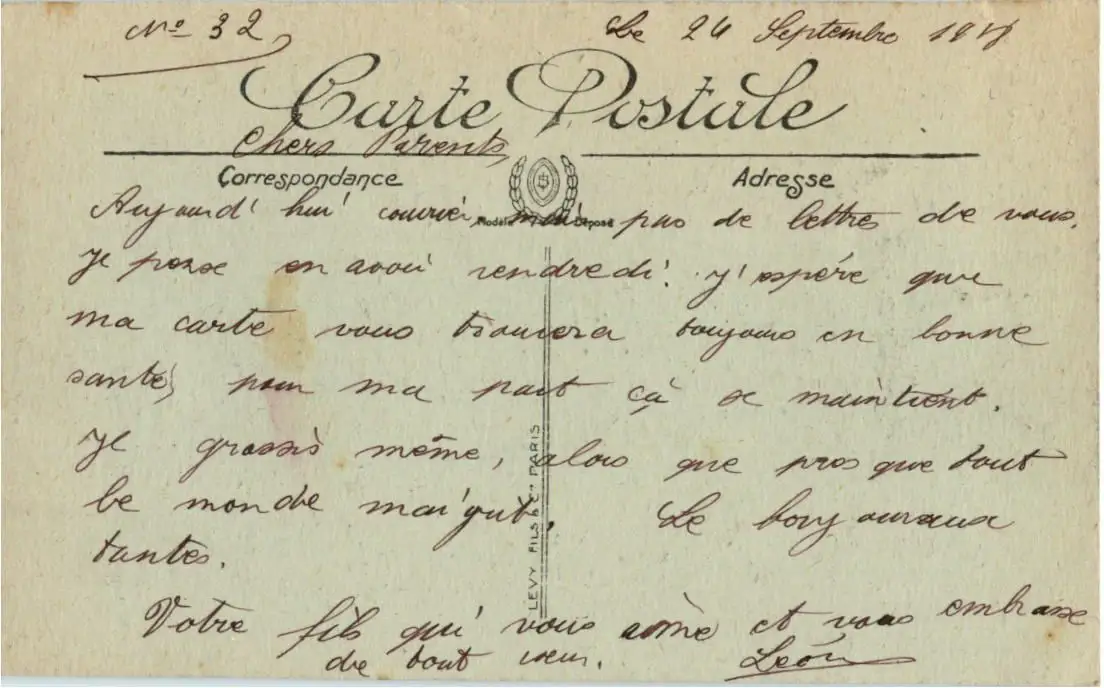 Nº 32
Le 24 Septembre 191
Carte Postale
Chers Parents,
Correspondance
Adresse
Modèle Déposé
Aujourd'hui courrier, mais pas de lettres de vous.
Je pense en avoir vendredi. J'espére que
ma carte vous trouvera toujours en bonne
santé, pour ma part çà se maintient.
Je grossis même, alors que presque tout
le monde maigrit. Le bonj aux
tantes.
Votre fils qui vous aime et vous embrasse
de tout cœur. Léon
LEVY FILS & Cie PARIS